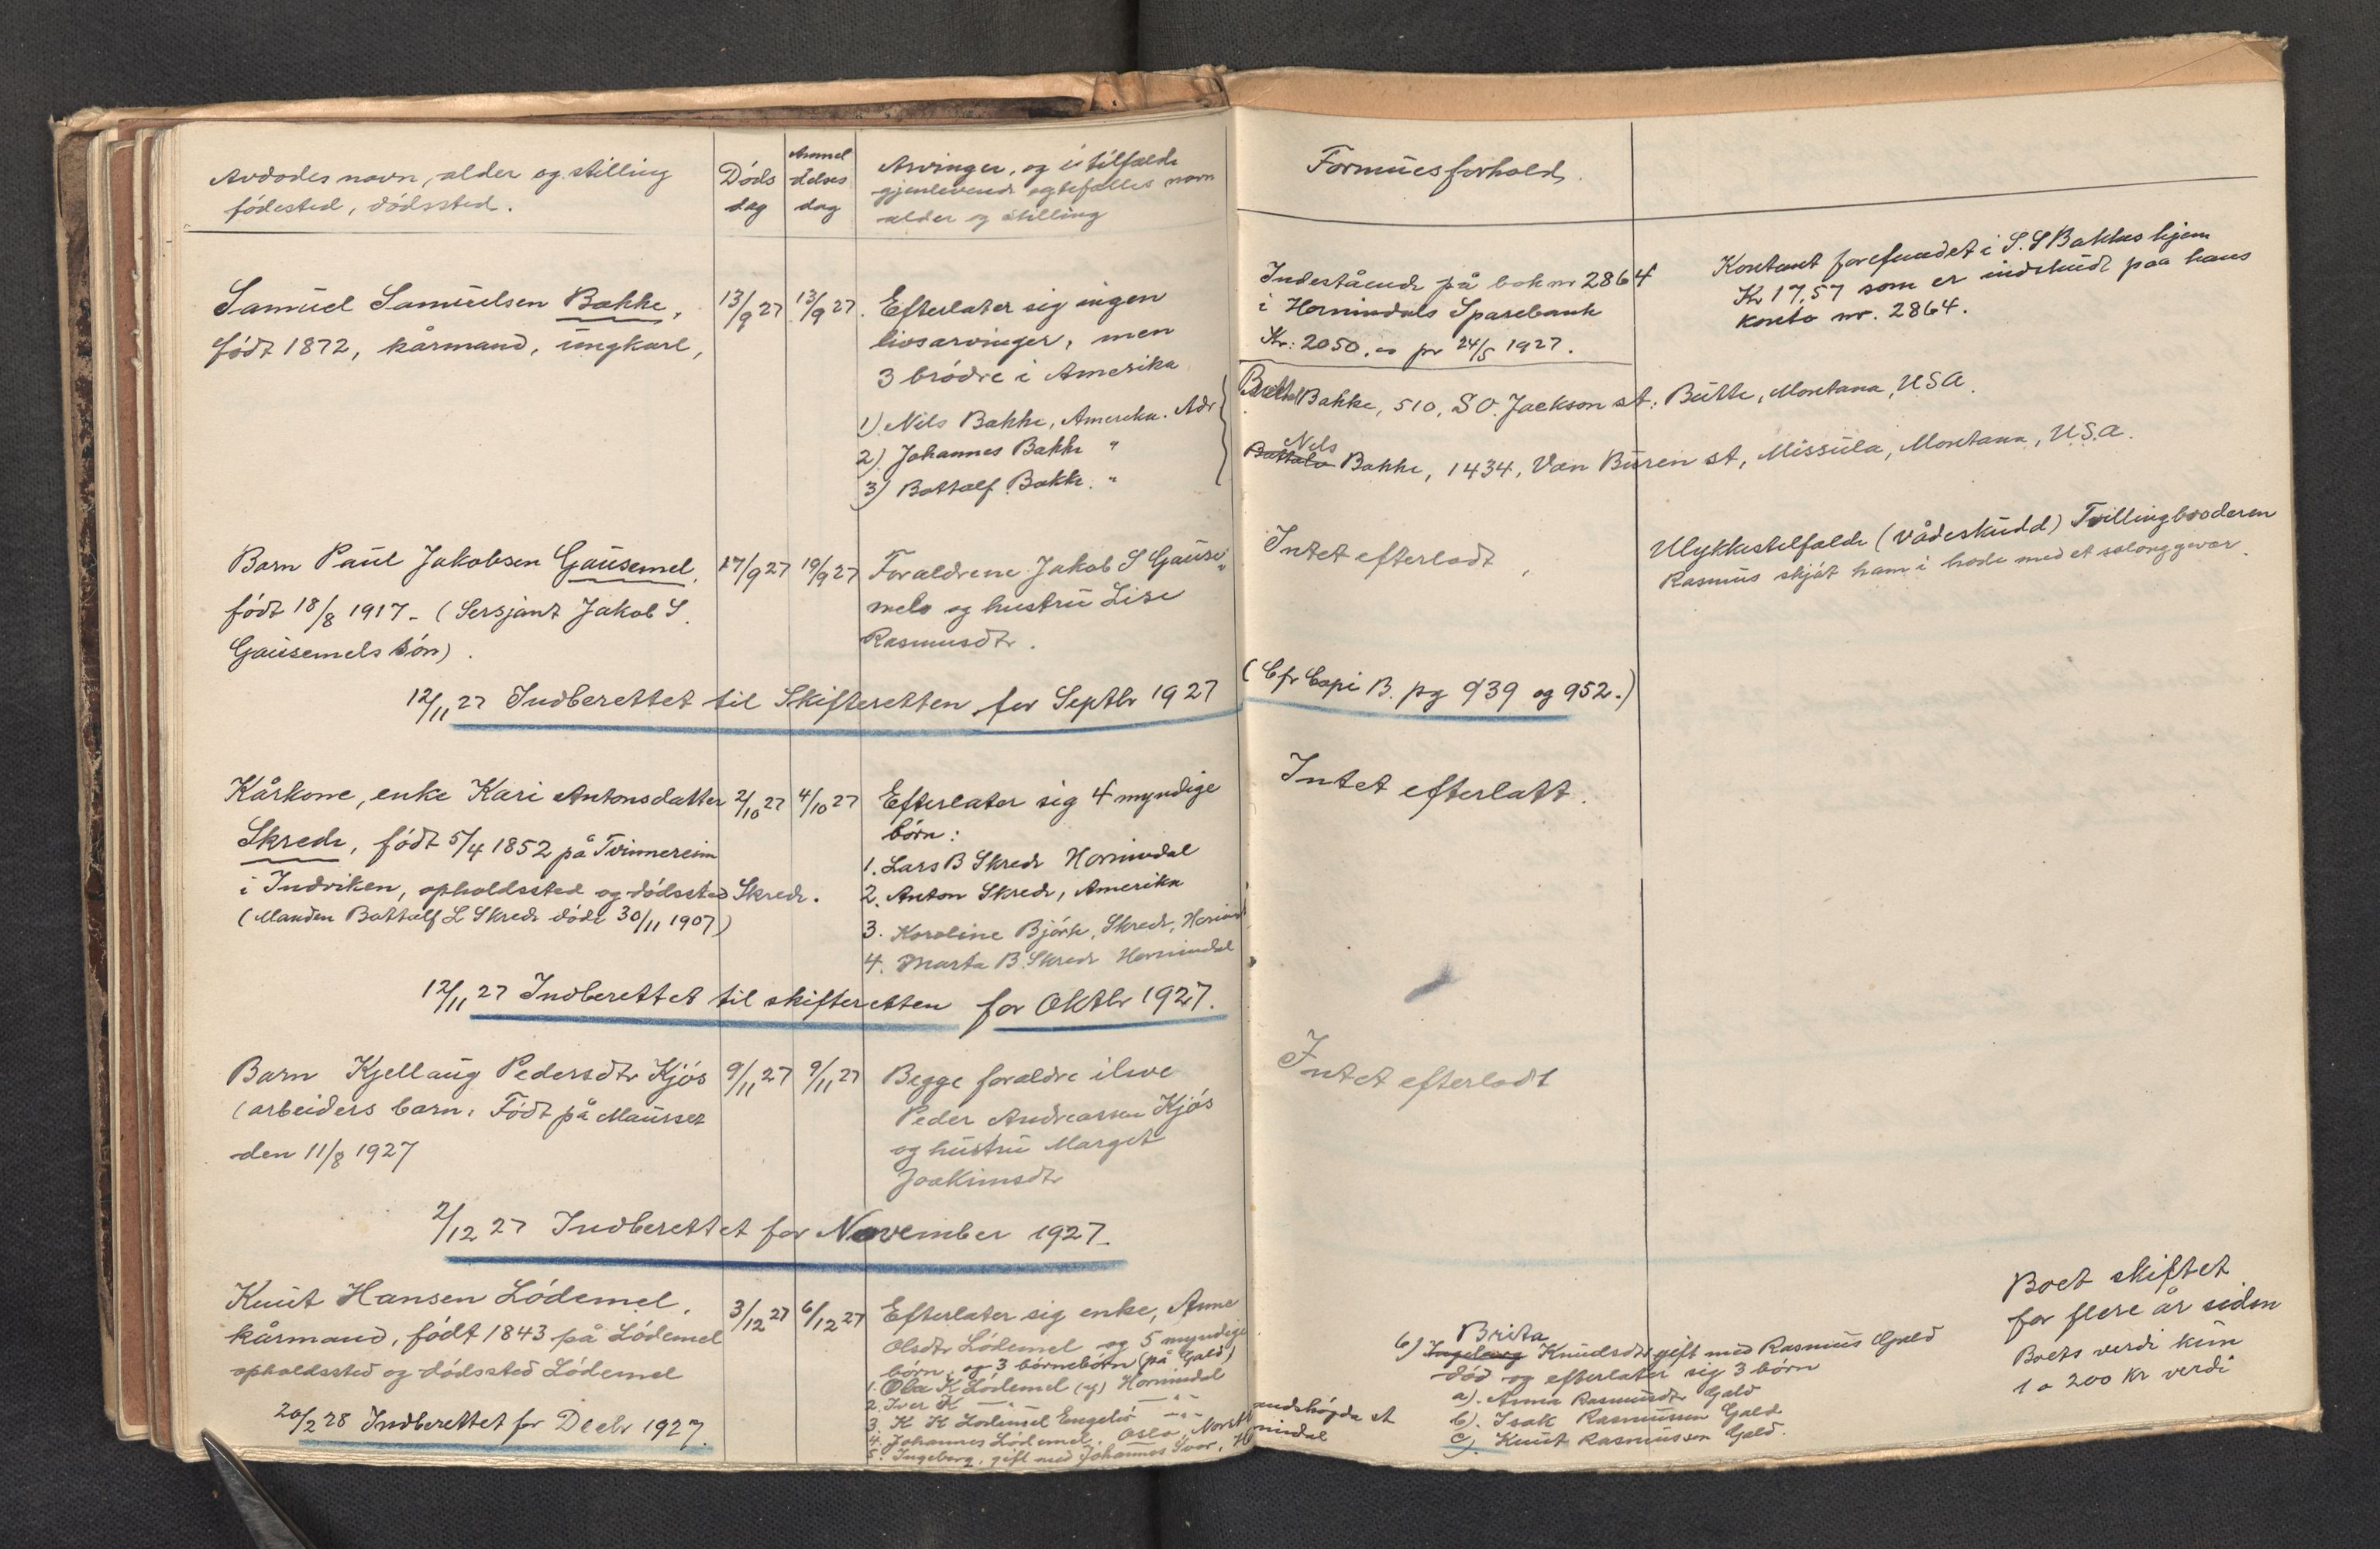 Avdødes navn, alder og stilling
fødested, dødssted.
Døds
dag
Anmel
delses
dag
Arvinger, og i tilfælde
gjenlevende egtefælles navn
alder og stilling
Formuesforhold.
Samuel Samuelsen Bakke,
født 1872, kårmand, ungkarl,
13/9 27
13/9 27.
Efterlater sig ingen
livsarvinger, men
3 brødre i Amerika
1) Nils Bakke, Amerika. Adr
2) Johannes Bakke "
3) Bottolf Bakke. "
Indestående på bok nr 2864
i Hornindals Sparebank
Kr: 2050,00 pr 24/5 1927.
Kontant forefundet i S. S Bakkes hjem
Kr 17,57 som er indskudt paa hans
konto nr. 2864.
Bakke, 510, SO. Jackson st: Butte, Montana, USA.
Nils
Bakke, 1434, Van Buren st, Missula, Montana, U.S.A.
Barn Paul Jakobsen Gausemel,
født 18/8 1917 - (Sersjant Jakob S.
Gausemels søn).
17/9 27
19/9 27
Forældrene Jakob S Gause-
mels og hustru Lise
Rasmusdtr.
Intet efterladt,
Ulykkestilfælde (vådeskudd) Tvillingbroderen
Rasmus skjøt ham i hode med et salonggevær.
12/11 27 Indberettet til Skifteretten for Septbr 1927
(Cfr Copi B. pg 939 og 952.)
Kårkone, enke Kari Antonsdatter
Skrede, født 5/4 1852 på Tvinnereim
i Indviken, opholdssted og dødssted Skrede.
(Manden Bottolf L Skrede døde 30/11 1907)
2/10 27
4/10 27
Efterlater sig 4 myndige
børn:
1. Lars B Skrede Hornindal
2. Anton Skrede, Amerika
3. Karoline Bjørk, Skrede,
4. Marta B. Skrede Hornindal
Intet efterlatt.
12/11 27 Indberettet til skifteretten for Oktbr 1927.
Barn Kjellaug Pedersdtr Kjøs
(arbeiders barn. Født på Maurset
den 11/8 1927
9/11 27
9/11 27
Begge forældre ilive
Peder Andreassen Kjøs
og hustru Marget
Joakimsdtr
Intet efterladt
2/12 27 Indberettet for November 1927.
Knut Hansen Lødemel,
kårmand, født 1843 på Lødemel
opholdssted og dødssted Lødemel
3/12 27
6/12 27
Efterlater sig enke, Anne
Olsdtr Lødemel og 5 myndige
børn, og 3 børnebørn (på Gald)
1. Ola K Lødemel (y) Hornindal
2. Iver K — " — — " —
3. K K Lødemel Engelid — " —
4. Johannes Lødemel, Oslo, Nordstrandshøgda st
5. Ingeborg, gift med Johannes Svor, Hornindal
Brita
6) Ingeborg Knudsdtr gift med Rasmus Gald
død og efterlater sig 3 børn
a). Anna Rasmusdtr Gald
b). Isak Rasmussen Gald
c). Knut Rasmussen Gald.
Boet skiftet
for flere år siden
Boets verdi kun
1 a 200 kr verdi
20/2 28 Indberettet for Decbr 1927.